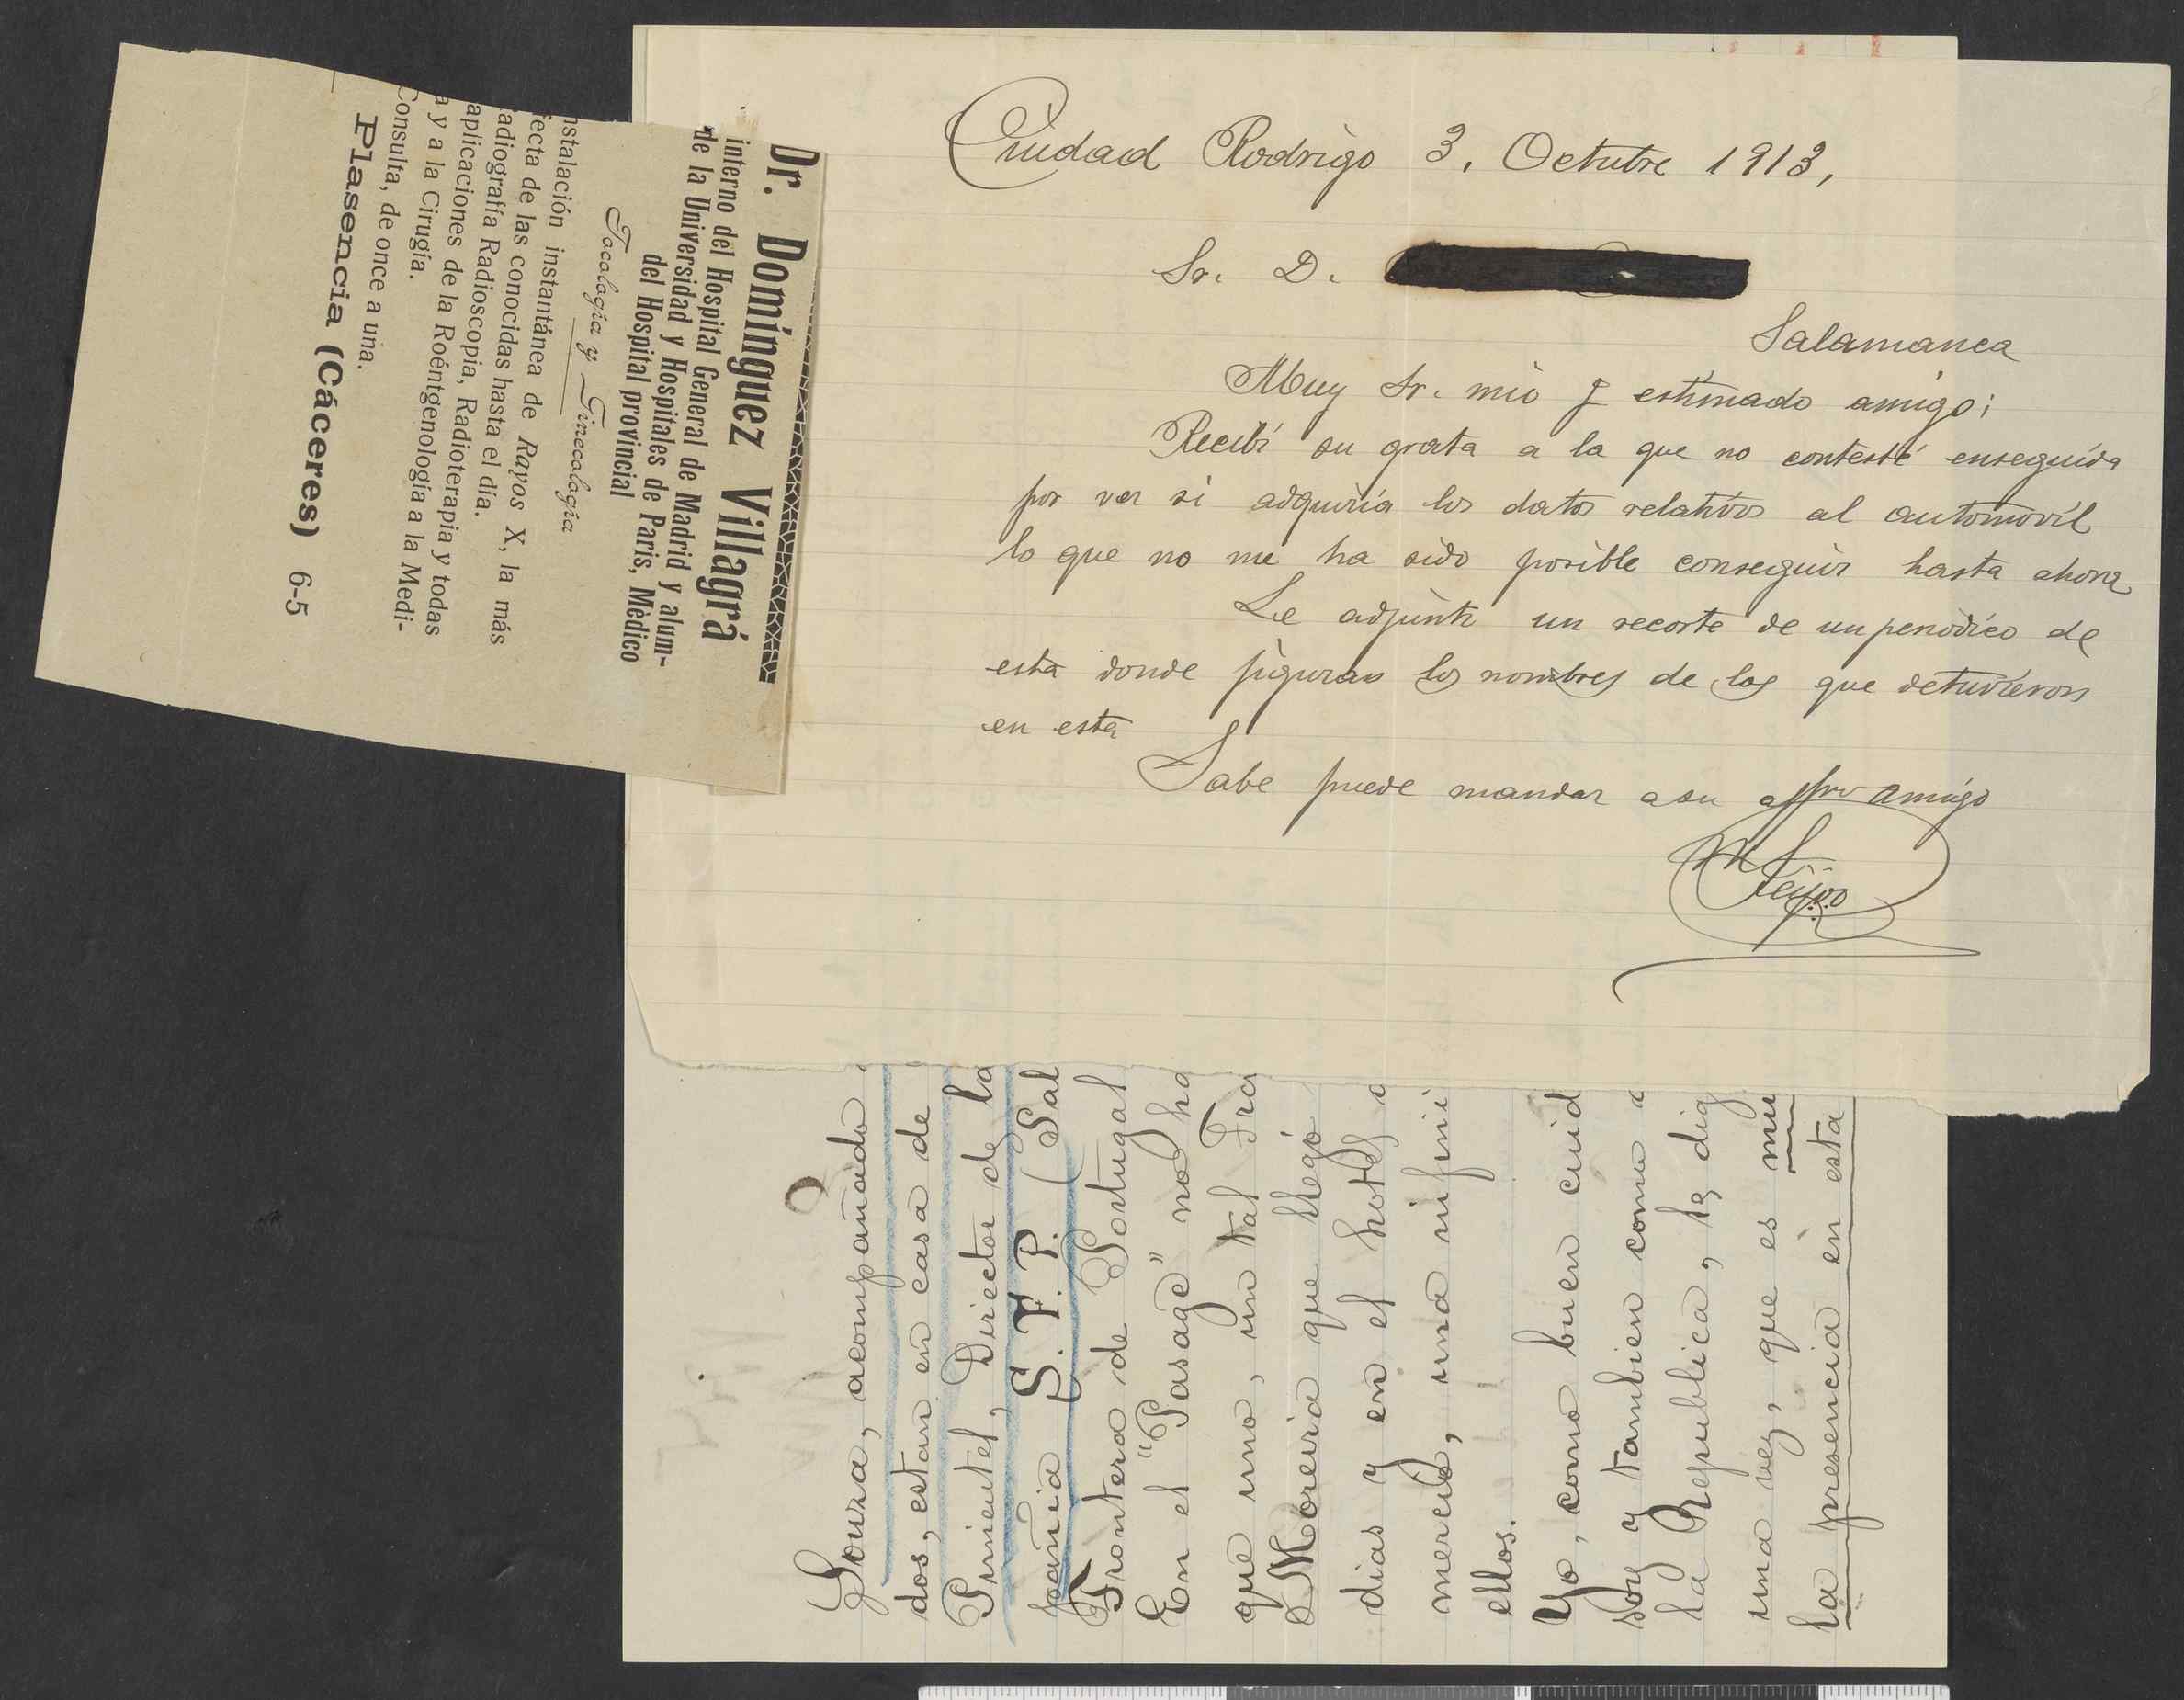 Ciudad Rodrigo 3, Octubre 1913,
Sr. D.
Salamanca
Muy Sr. mio y estimado amigo;
Recibí su grata a la que no contesté enseguida
por ver si adquiria los datos relativos al automovil
lo que no me ha sido posible conseguir hasta ahora
Le adjunto un recorte de un periódico de
esta donde figuran los nombres de los que detuvieron
en esta
Sabe puede mandar a su affmo amigo
M Feijoo
Dr. Domínguez Villagrá
interno del Hospital General de Madrid y alum-
de la Universidad y Hospitales de Paris, Médico
del Hospital provincial
Tocología y Ginecología
nstalación instantánea de Rayos X, la más
fecta de las conocidas hasta el día.
adiografía Radioscopia, Radioterapia y todas
aplicaciones de la Roéntgenología a la Medi-
a y a la Cirugía.
Consulta, de once a una.
Plasencia (Cáceres) 6-5
Souza, acompañado
dos, estan en casa de
Pimentel, Director de la
pañia (S. F. P. (Sal
Frontera de Portugal
En el "Pasage" no ha
que uno, un tal Fra
Moreira que llegó
dias y en el hotel
mercio, una infini
ellos.
Yo, como buen ciud
soy y tambien como
la Republica, le dig
una vez, que es mui
la presencia en esta